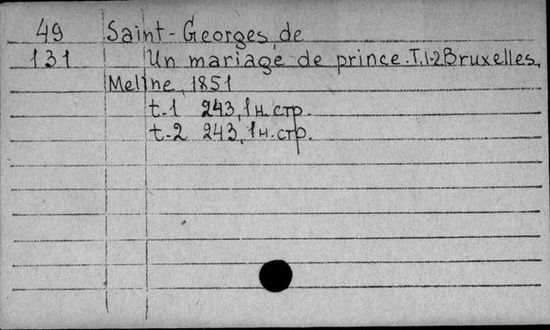 49 Saint-Georges, de
131 Un mariage de prince. T.1-2 Bruxelles,
Meline, 1851
t.1 243, 1 н. стр.
t.2 243, 1 н. стр.